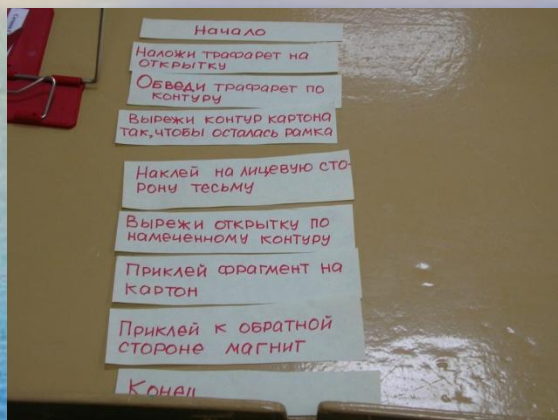 Начало
Наложи трафарет на
открытку
Обведи трафарет по
контуру
Вырежи контур картона
так, чтобы осталась рамка
Наклей на лицевую сто-
рону тесьму
Вырежи открытку по
намеченному контуру
Приклей фрагмент на
картон
Приклей к обратной
стороне магнит
Конец